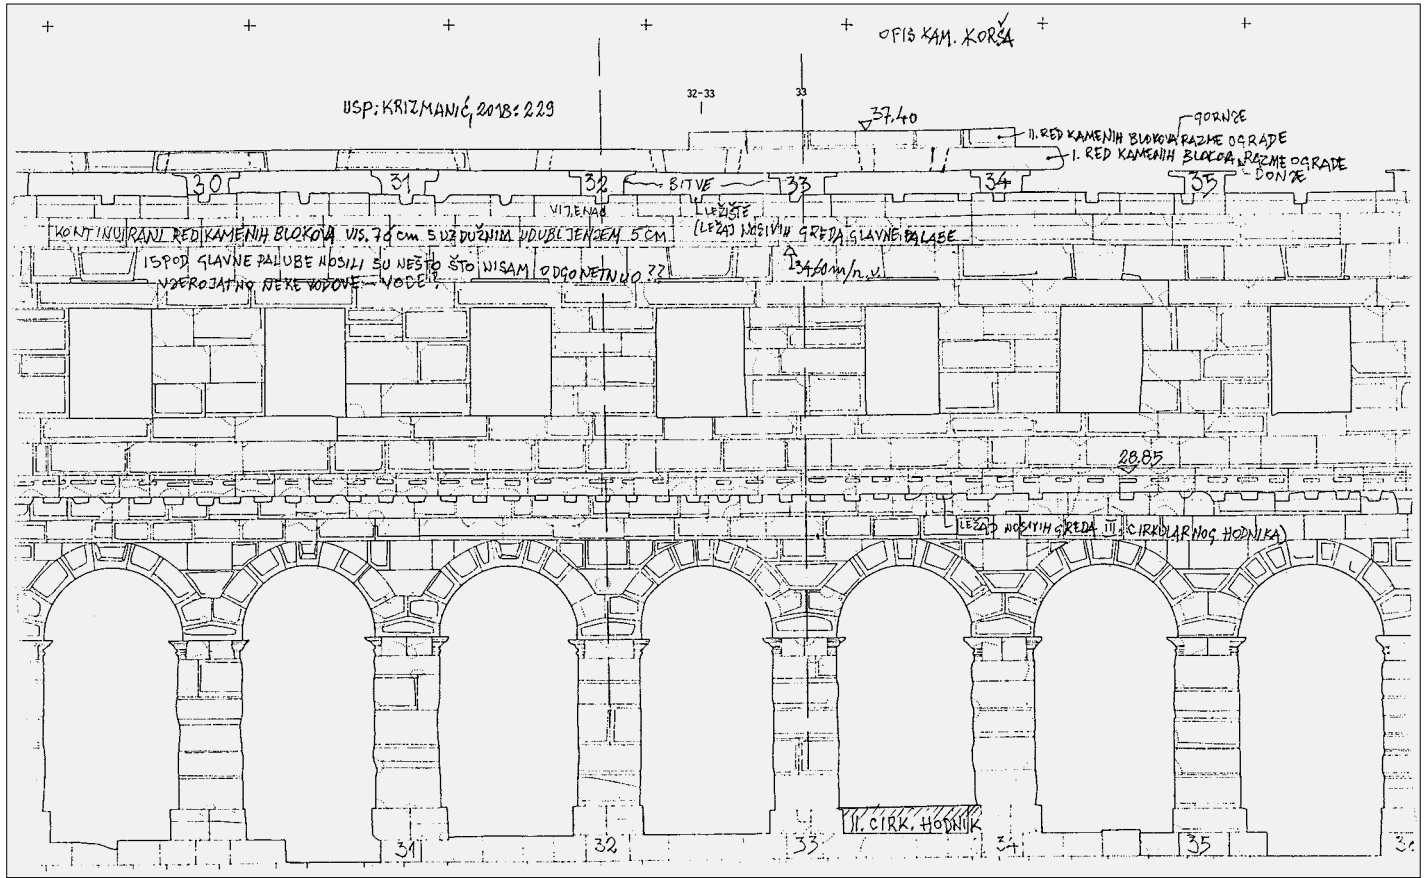 OPIS KAM. KORŠA
USP: KRIZMANIĆ, 2018: 229
32-33
33
37.40
GORNJE
II. RED KAMENIH BLOKOVA RAZME OGRADE
I. RED KAMENIH BLOKOVA RAZME OGRADE
DONJE
30 31 32 BITVE 33 34 35
VIJENAC
LEŽIŠTE
KONTINUIRANI RED KAMENIH BLOKOVA VIS. 76 cm S UZDUŽNIM UDUBLJENJEM 5 CM
(LEŽAJ NOSIVIH GREDA GLAVNE PALUBE
ISPOD GLAVNE PALUBE NOSILI SU NEŠTO ŠTO NISAM ODGONETNUO??
34,60 m/n.v.
VJEROJATNO NEKE VODOVE - VODE?
28.85
LEŽAJ NOSIVIH GREDA III. CIRKULARNOG HODNIKA)
II. CIRK. HODNIK
31 32 33 34 35